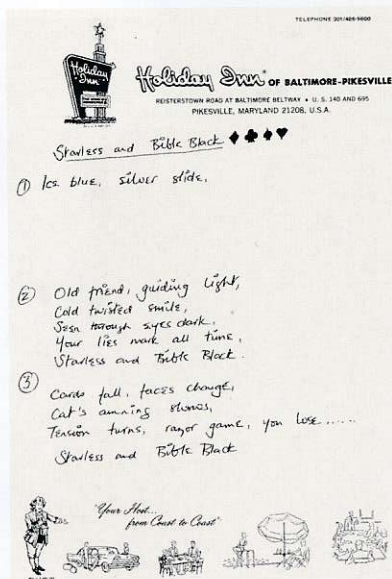 TELEPHONE 301/486-5600
Holiday Inn
Holiday Inn OF BALTIMORE-PIKESVILLE
REISTERSTOWN ROAD AT BALTIMORE BELTWAY • U. S. 140 AND 695
PIKESVILLE, MARYLAND 21208, U.S.A.
Starless and Bible Black ♦ ♣ ♠ ♥
① Ice blue, silver slide,
② Old friend, guiding light,
Cold twisted smile,
Seen through eyes dark,
Your lies mark all time,
Starless and Bible Black.
③ Cards fall, faces change,
Cat's
Tension turns, razor game, you lose ......
Starless and Bible Black
"Your Host...
from Coast to Coast"